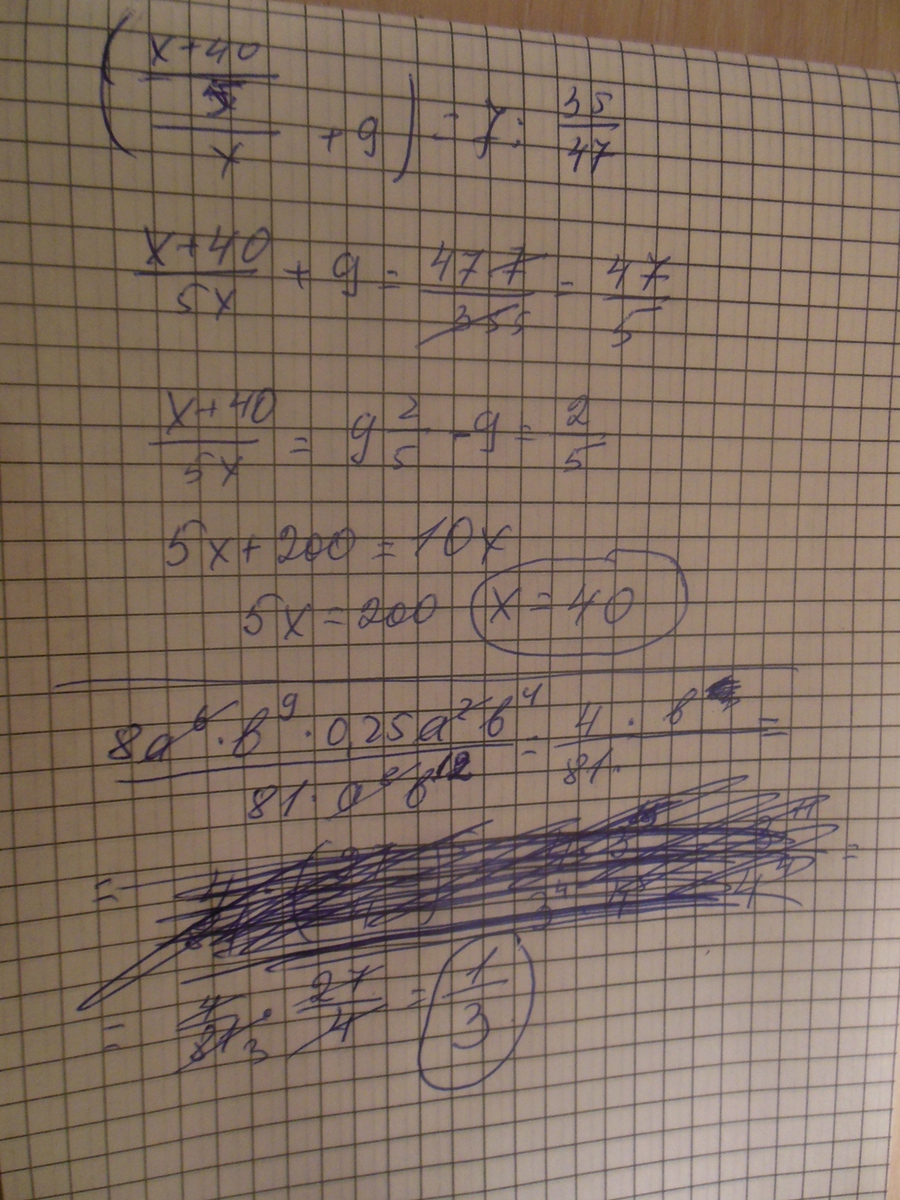 ((x+40)/5/x + 9) = 7 : 35/47
(x+40)/5x + 9 = 47 7/35 5 = 47/5
(x+40)/5x = 9 2/5 - 9 = 2/5
5x + 200 = 10x
5x = 200 x = 40
8a⁶ · b⁹ · 0,25a²b⁴ / 81 · a⁸b¹² = 4/81 · b =
= 4/81 3 · 27/4 = 1/3